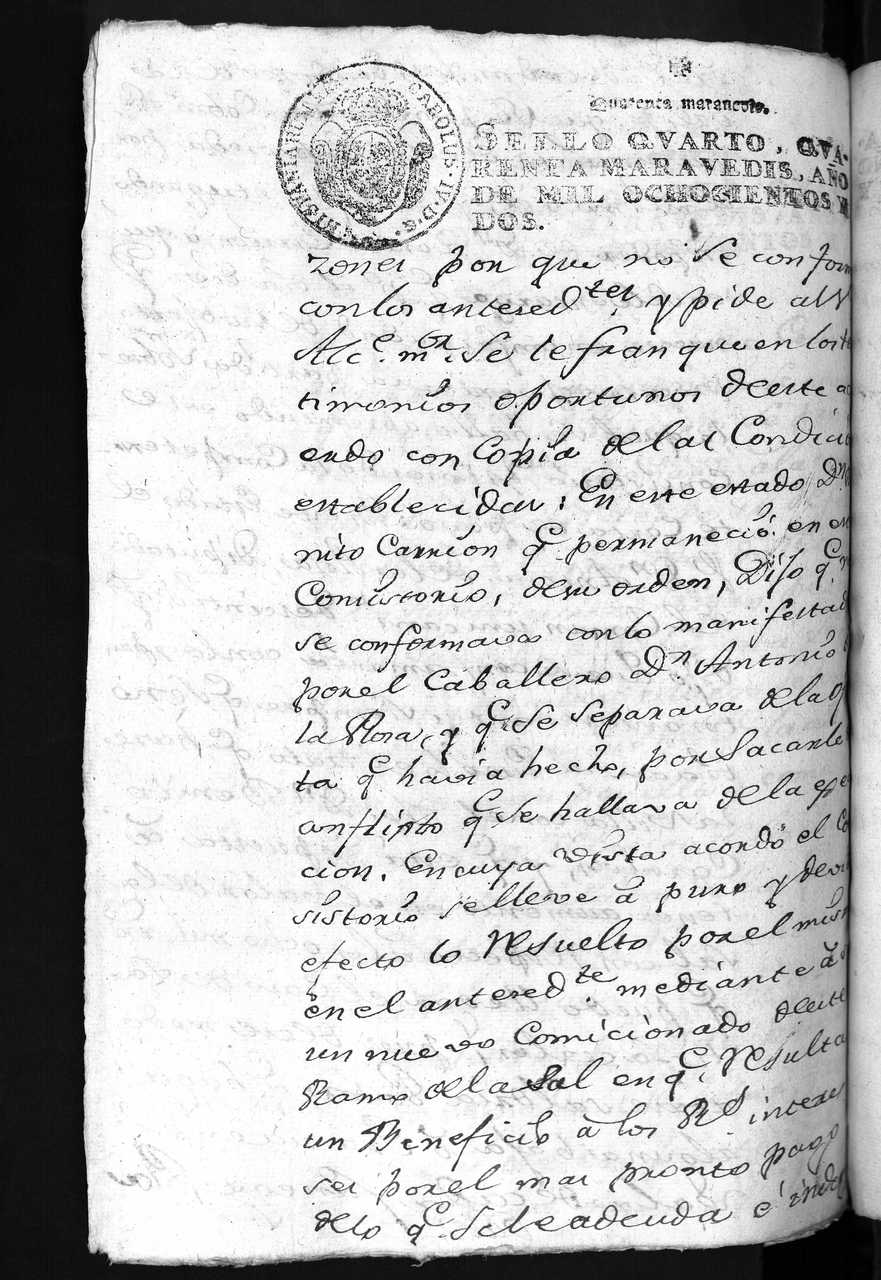 Quarenta maravedis.
SELLO QVARTO, QVA-
RENTA MARAVEDIS, AÑO
DE MIL OCHOCIENTOS Y
DOS.
CAROLUS·IV·D·G· HISPANIARUM
zones por que no se conform
con los antezed.tes, y pide al
Alc.e m.or se le franqueen los te
timonios oportunos de este a
erdo con Copia de las Condicio
establecidas; En este estado D.n
nito Carrion q.e permanecio en es
Consistorio, de su orden, Dijo q.e
se conformava con lo manifestad
por el Caballero D.n Antonio
la Rosa, y q.e se separava de la
ta q.e havia hecho, por Sacar le
conflicto q.e se hallava de la
cion. En cuya vista acordó el Co
sistorio se lleve à puro y devi
efecto lo resuelto por el mism
en el antezed.te mediante à
un nuevo Comicionado de este
Ramo de la Sal en q.e resulta
un Beneficio a los R.s interes
ses por el mas pronto pago
de lo q.e se le adeuda é